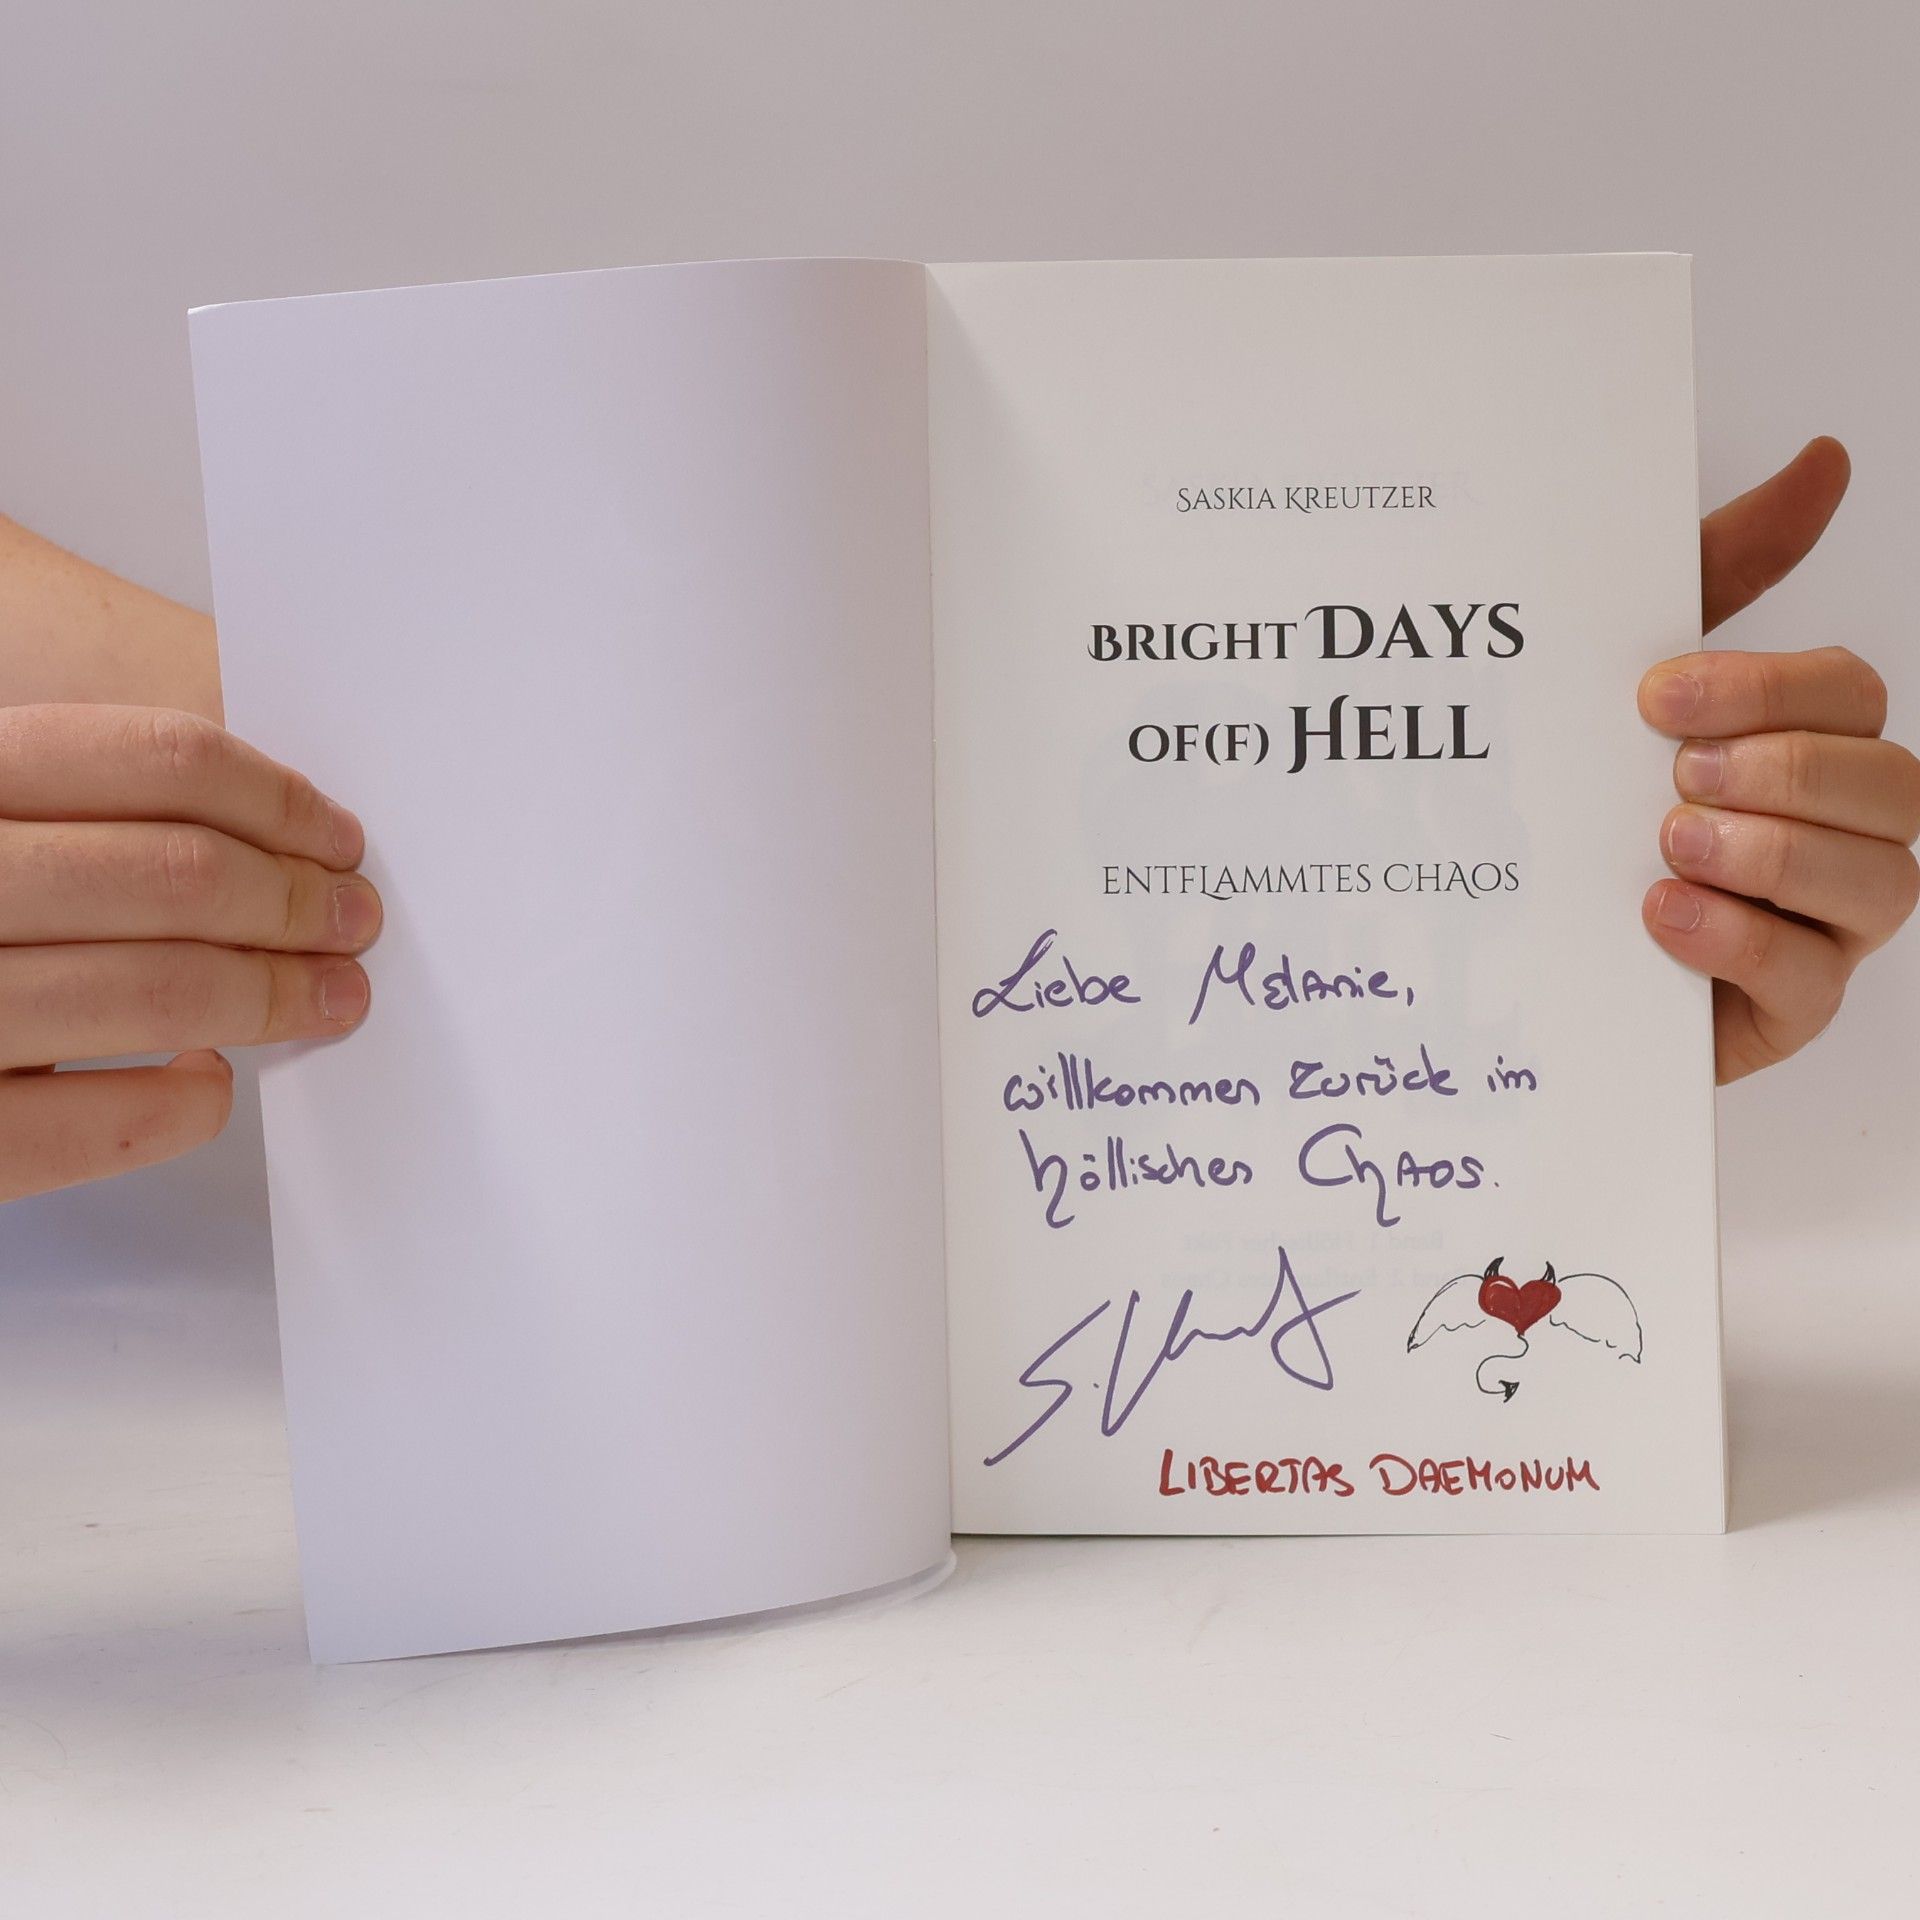 SASKIA KREUTZER
BRIGHT DAYS
OF(F) HELL
ENTFLAMMTES CHAOS
Liebe Melanie,
willkommen zurück im
höllischen Chaos.
LIBERTAS DAEMONUM